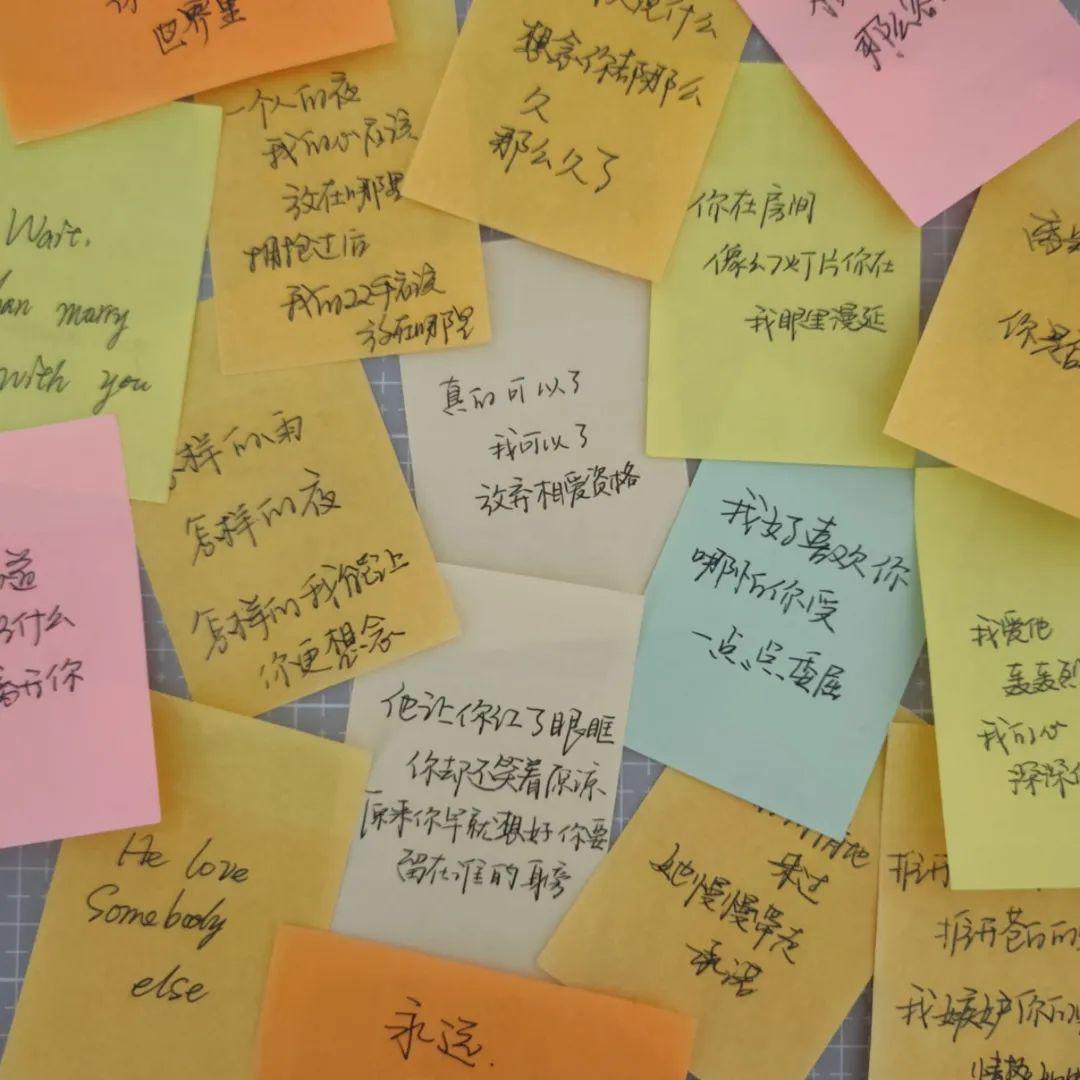 世界里
一个人的夜
我的心应该
放在哪里
拥抱过后
我的双手应该
放在哪里
想念你都那么
久
那么久了
那么容
你在房间
像幻灯片你在
我眼里漫延
Wait,
marry
with you
真的可以了
我可以了
放弃相爱资格
怎样的雨
怎样的夜
怎样的我能让
你更想念
我好喜欢你
哪怕你受
一点点委屈
什么
离开你
我爱他
轰轰烈
我的心
深深
他让你红了眼眶
你却还笑着原谅
原来你早就想好你要
留在谁的身旁
He love
Somebody
else
来过
她慢慢带走
承诺
推开
推开苍白的
我嫉妒你的
情热
永远.